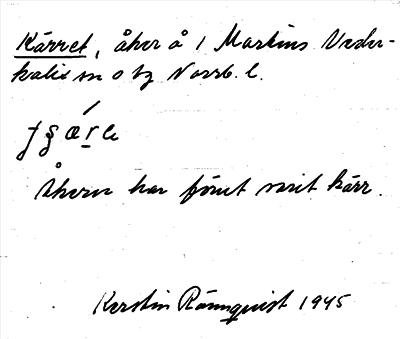 Kärret, åker å 1 Martins Veder-
kalix sn o tg Norrb. l.
Åkern har förut varit kärr.
Kerstin Rönnquist 1945